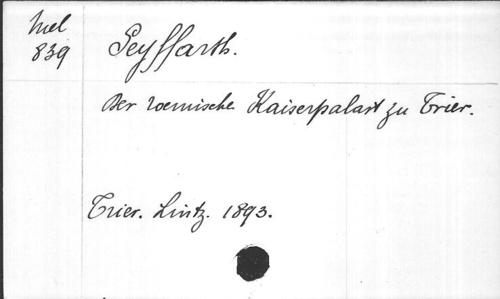 Mel
839
Seyffarth.
Der roemische Kaiserpalast zu Trier.
Trier. Lintz. 1893.